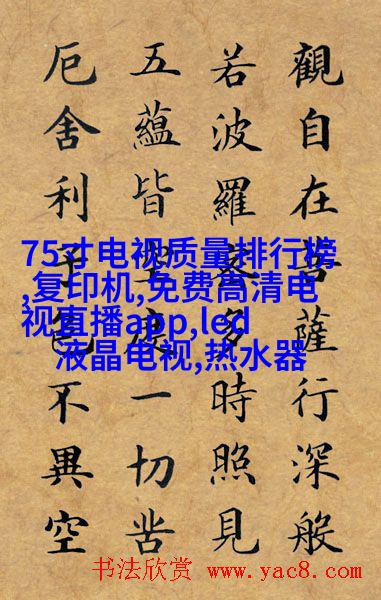 觀自在菩薩行深般
若波羅蜜多時照見
五蘊皆空度一切苦
厄舍利子色不異空
75寸电视质量排行榜
,复印机,免费高清电
视直播app,led
液晶电视,热水器
书法欣赏 www.yac8.com